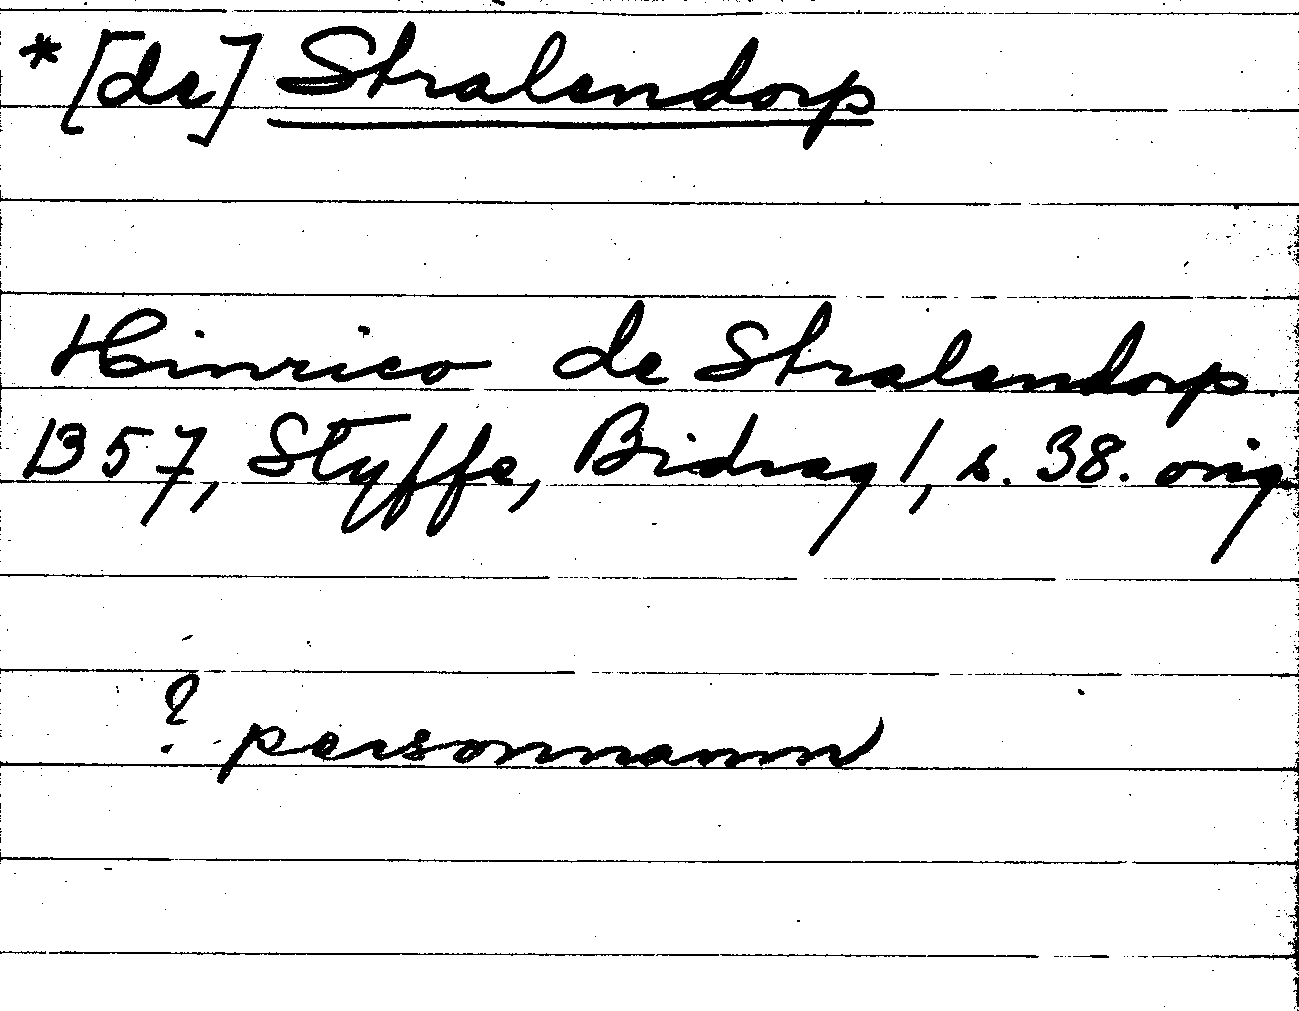 *[de] Stralendorp
Hinrico de Stralendorp
1357, Styffe, Bidrag 1, s. 38. orig.
? personnamn